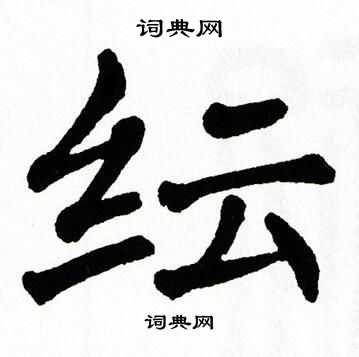 词典网
纭
词典网